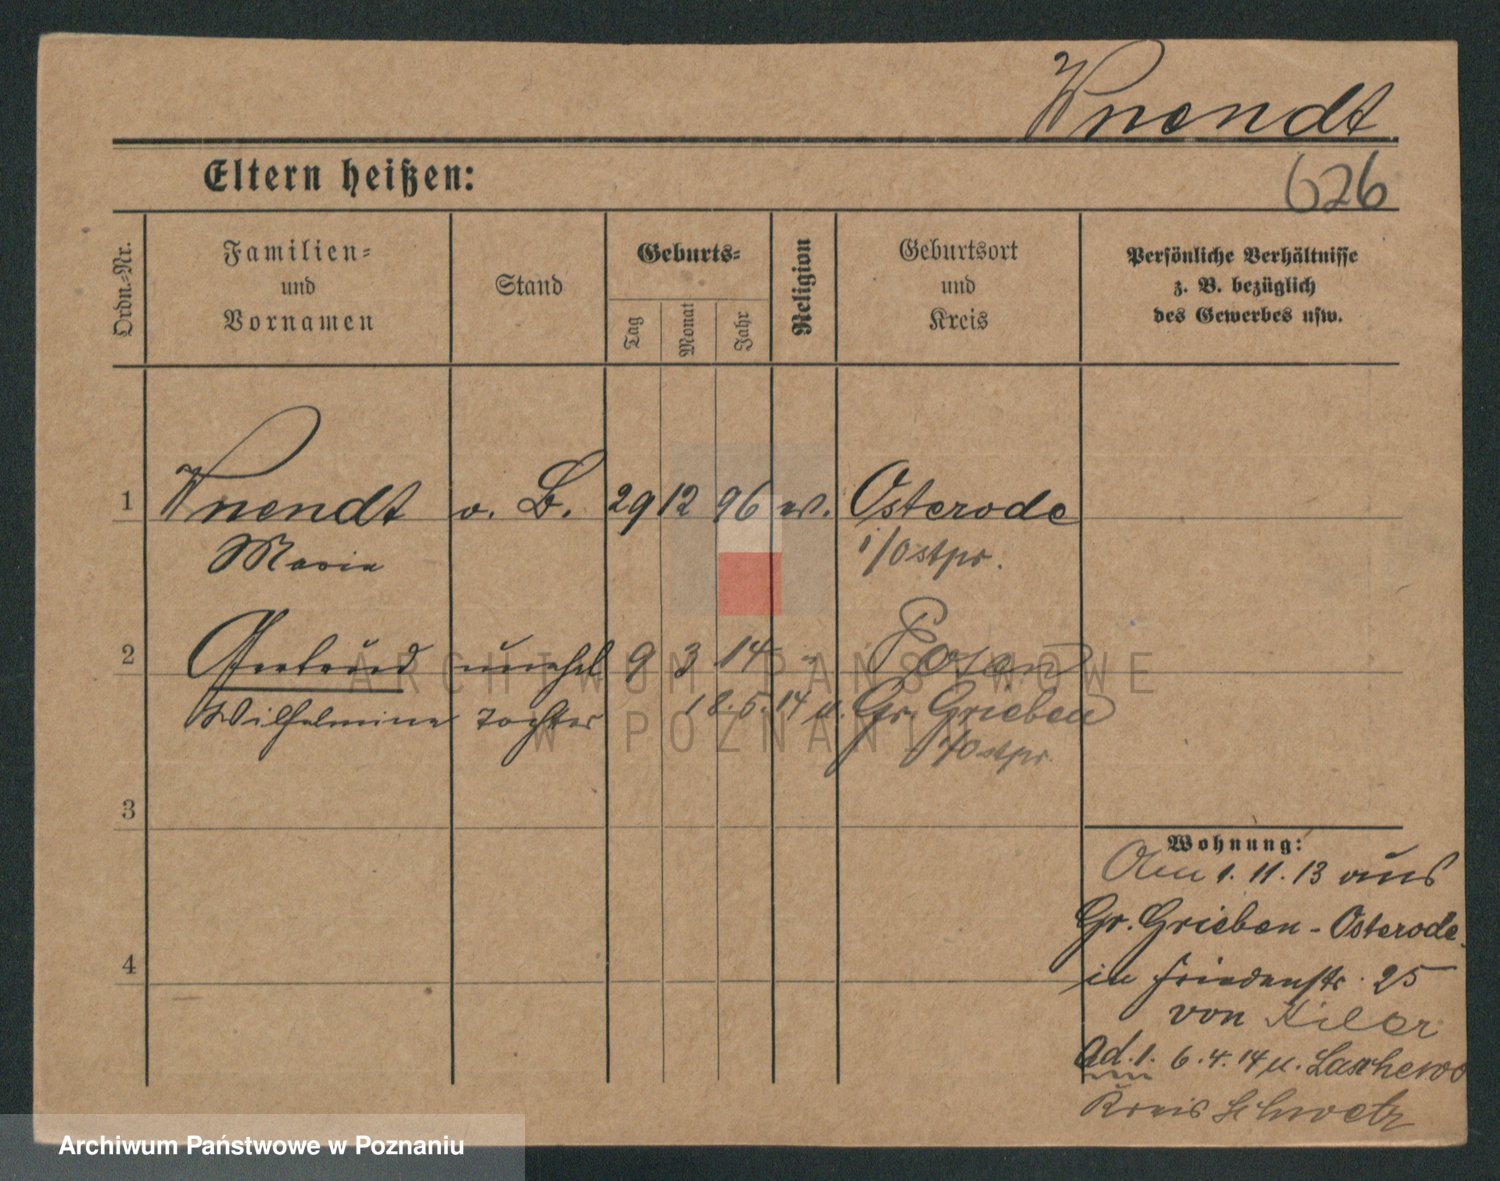 Wnendt
Eltern heißen:
626
Ordn.-Nr.
Familien-
und
Vornamen
Stand
Geburts-
Tag
Monat
Jahr
Religion
Geburtsort
und
Kreis
Persönliche Verhältnisse
z. B. bezüglich
des Gewerbes usw.
1 Wnendt o. B. 29 12 96 ev. Osterode
Marie i/Ostpr.
2 Gertrud unehel 9 3 14 " Posen
Wilhelmine Tochter 18.5.14 u. Gr. Grieben
i/Ostpr.
3
4
Wohnung:
Am 1.11.13 aus
Gr. Grieben - Osterode
in Friedenstr. 25
von
ad. 1. 6.4.14 u. Laschewo
Kreis Schwetz
ARCHIWUM PAŃSTWOWE
W POZNANIU
Archiwum Państwowe w Poznaniu